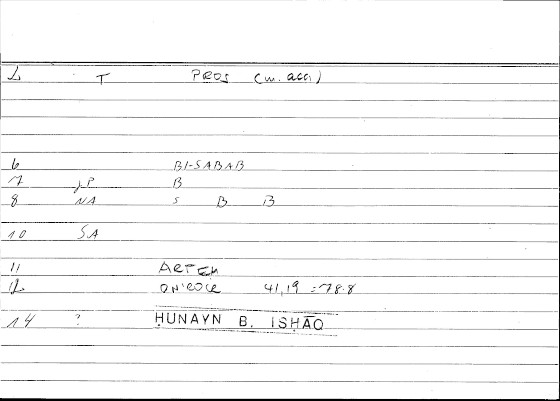 1 T PROS (w. acc.)
6 BI-SABAB
7 JP B
8 NA S B B
10 SA
11 ARTEM
12 ONIROCR 41,19 = 78.8
14 ? ḤUNAYN B. ISḤĀQ